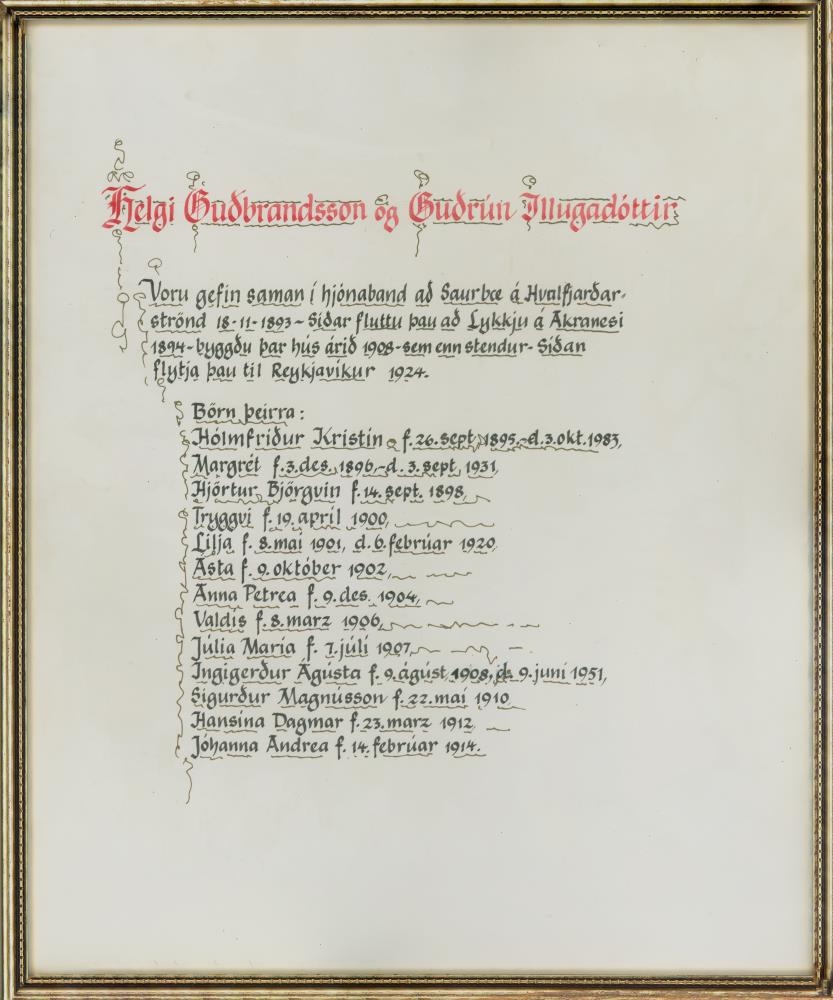 Helgi Guðbrandsson og Guðrún Illugadóttir
Voru gefin saman í hjónaband að Saurbæ á Hvalfjarðar-
strönd 18-11-1893 - Síðar fluttu þau að Lykkju á Akranesi
1894 - byggðu þar hús árið 1908 - sem enn stendur - Síðan
flytja þau til Reykjavíkur 1924.
Börn þeirra:
Hólmfríður Kristín f. 26. sept. 1895, - d. 3. okt. 1983,
Margrét f. 3. des. 1896, - d. 3. sept. 1931,
Hjörtur Björgvin f. 14. sept. 1898,
Tryggvi f. 19. apríl 1900,
Lilja f. 8. maí 1901, d. 6. febrúar 1920,
Ásta f. 9. október 1902,
Anna Petrea f. 9. des. 1904,
Valdís f. 8. marz 1906,
Júlía María f. 7. júlí 1907,
Ingigerður Ágústa f. 9. ágúst 1908, d. 9. júní 1951,
Sigurður Magnússon f. 22. maí 1910,
Hansína Dagmar f. 23. marz 1912,
Jóhanna Andrea f. 14. febrúar 1914.